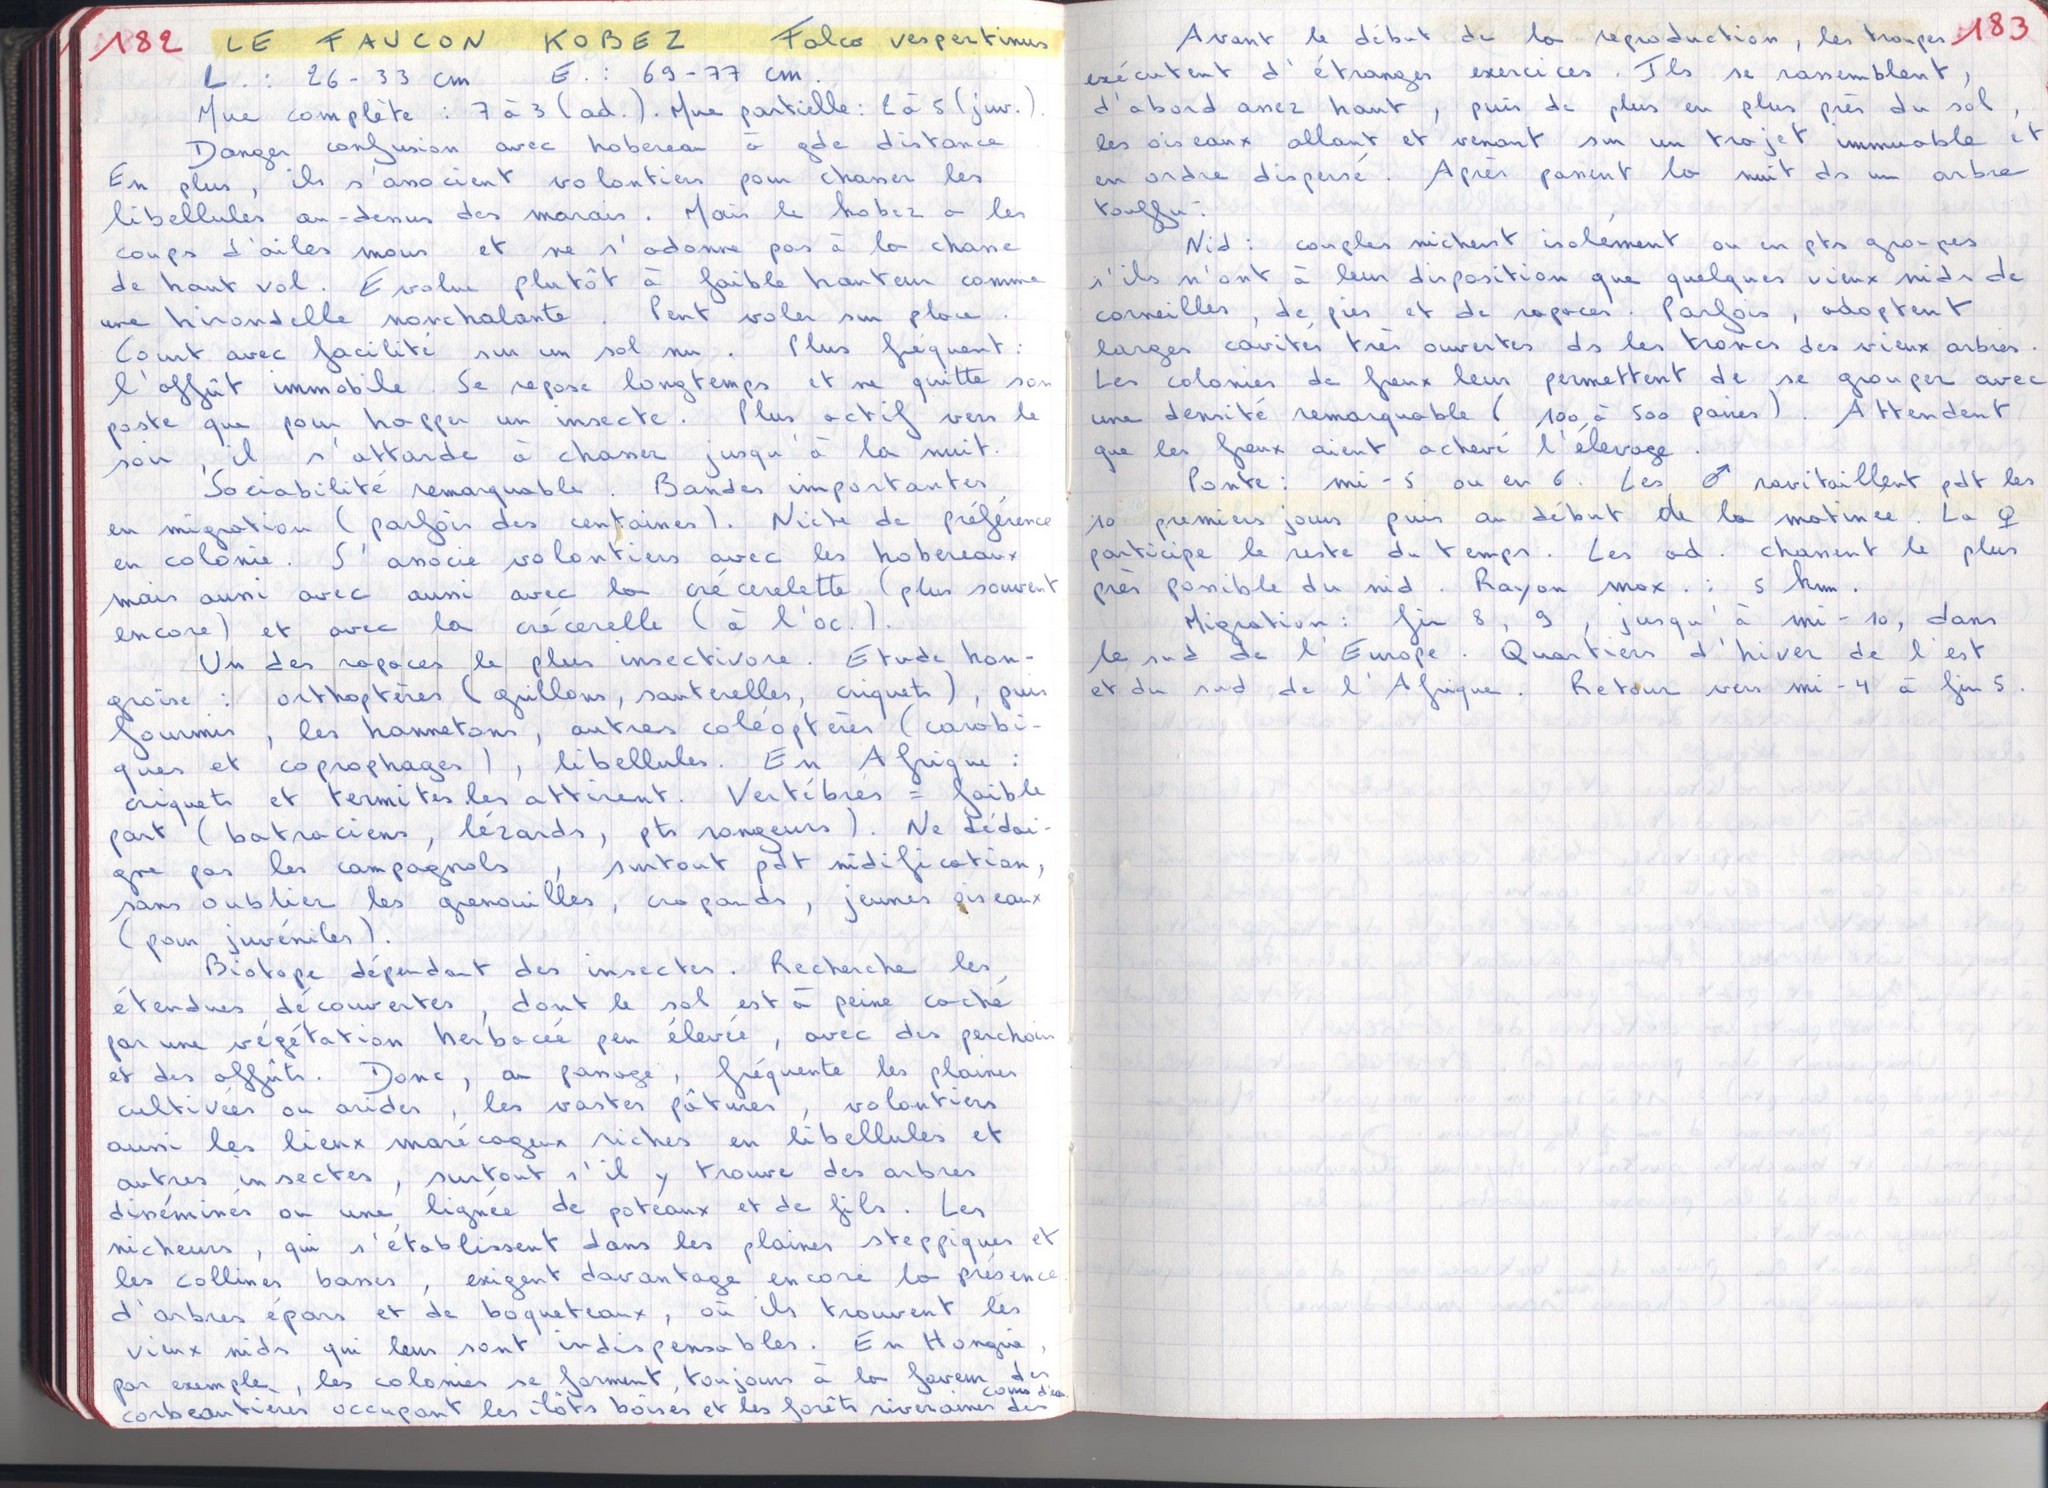 182 LE FAUCON KOBEZ Falco vespertinus
L. : 26-33 cm E. : 69-77 cm.
Mue complète : 7 à 3 (ad.). Mue partielle : 2 à 5 (juv.).
Danger confusion avec hobereau à gde distance
En plus, ils s'associent volontiers pour chasser les
libellules au-dessus des marais. Mais le kobez a les
coups d'ailes mous et ne s'adonne pas à la chasse
de haut vol. Evolue plutôt à faible hauteur comme
une hirondelle nonchalante. Peut voler sur place.
Court avec facilité sur un sol nu. Plus fréquent :
l'affût immobile. Se repose longtemps et ne quitte son
poste que pour happer un insecte. Plus actif vers le
soir, il s'attarde à chasser jusqu'à la nuit.
Sociabilité remarquable. Bandes importantes
en migration (parfois des centaines). Niche de préférence
en colonie. S'associe volontiers avec les hobereaux
mais aussi avec aussi avec la crécerelette (plus souvent
encore) et avec la crécerelle (à l'oc.).
Un des rapaces le plus insectivore. Etude hon-
groise : orthoptères (grillons, sauterelles, criquets), puis
fourmis, les hannetons, autres coléoptères (carabi-
ques et coprophages), libellules. En Afrique :
criquets et termites les attirent. Vertébrés = faible
part (batraciens, lézards, pts rongeurs). Ne dédai-
gne pas les campagnols, surtout pdt nidification,
sans oublier les grenouilles, crapauds, jeunes oiseaux
(pour juvéniles).
Biotope dépendant des insectes. Recherche les
étendues découvertes, dont le sol est à peine caché
par une végétation herbacée peu élevée, avec des perchoirs
et des affûts. Donc, au passage, fréquente les plaines
cultivées ou arides, les vastes pâtures, volontiers
aussi les lieux marécageux riches en libellules et
autres insectes, surtout s'il y trouve des arbres
disséminés ou une lignée de poteaux et de fils. Les
nicheurs, qui s'établissent dans les plaines steppiques et
les collines basses, exigent davantage encore la présence
d'arbres épars et de boqueteaux, où ils trouvent les
vieux nids qui leur sont indispensables. En Hongrie,
par exemple, les colonies se forment toujours à la faveur des
corbeautières occupant les îlots boisés et les forêts riveraines des
cours d'eau.
183
Avant le début de la reproduction, les troupes
exécutent d'étranges exercices. Ils se rassemblent,
d'abord assez haut, puis de plus en plus près du sol,
les oiseaux allant et venant sur un trajet immuable et
en ordre dispersé. Après passent la nuit ds un arbre
touffu.
Nid : couples nichent isolément ou en pts groupes
s'ils n'ont à leur disposition que quelques vieux nids de
corneilles, de pies et de rapaces. Parfois, adoptent
larges cavités très ouvertes ds les troncs des vieux arbres.
Les colonies de freux leur permettent de se grouper avec
une densité remarquable (100 à 500 paires). Attendent
que les freux aient achevé l'élevage.
Ponte : mi-5 ou en 6. Les ♂ ravitaillent pdt les
10 premiers jours puis au début de la matinée. La ♀
participe le reste du temps. Les ad. chassent le plus
près possible du nid. Rayon max. : 5 km.
Migration : fin 8, 9, jusqu'à mi-10, dans
le sud de l'Europe. Quartiers d'hiver de l'est
et du sud de l'Afrique. Retour vers mi-4 à fin 5.